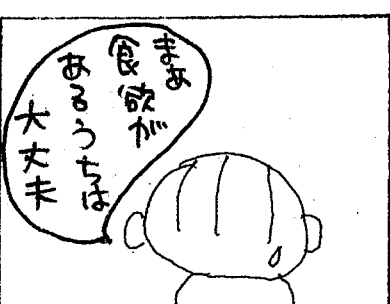 まあ
食欲が
あるうちは
大丈夫